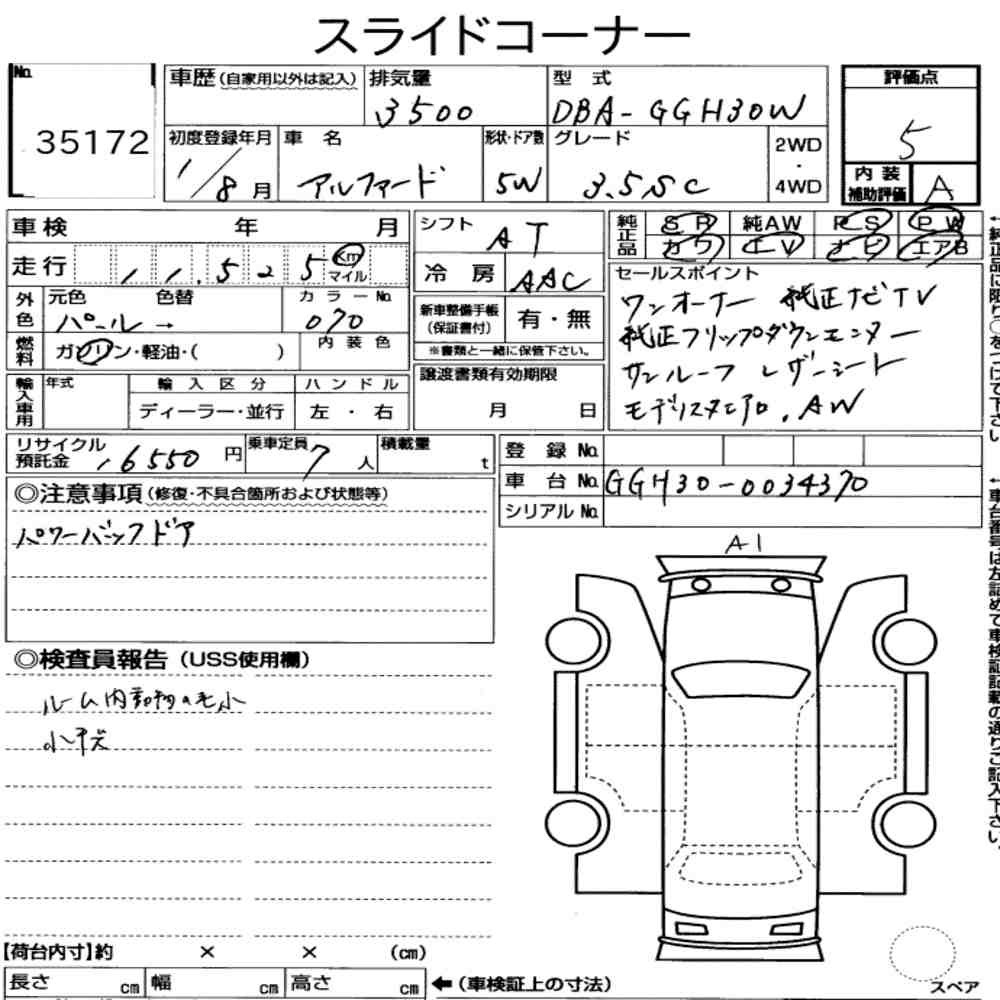 スライドコーナー
No.
35172
車歴(自家用以外は記入)
排気量
3500
型 式
DBA-GGH30W
評価点
5
初度登録年月
1/8月
車 名
アルファード
形状・ドア数
5W
グレード
3.5SC
2WD
・
4WD
内 装
補助評価
A
車検 年 月
シフト
AT
純正品
SR 純AW PS PW
カワ TV ナビ エアB
走行
11,525 Km
マイル
冷 房
AAC
セールスポイント
ワンオーナー 純正ナビTV
純正フリップダウンモニター
サンルーフ レザーシート
モデリスタエアロ.AW
外色
元色 色替
パール→
カラーNo.
070
新車整備手帳
(保証書付)
有・無
※書類と一緒に保管下さい。
燃料
ガソリン・軽油・( )
内 装 色
譲渡書類有効期限
月 日
輸入車用
年式
輸 入 区 分
ディーラー・並行
ハ ン ド ル
左 ・ 右
リサイクル
預託金
16550 円
乗車定員
7 人
積載量
t
登 録 No.
車 台 No.
GGH30-0034370
シリアル No.
◎注意事項(修復・不具合箇所および状態等)
パワーバックドア
A1
◎検査員報告(USS使用欄)
ルーム内動物の毛小
【荷台内寸】約 × × (cm)
長さ cm 幅 cm 高さ cm
←(車検証上の寸法)
スペア
←純正品に限り○をつけて下さい。
←車台番号は左詰めて車検証記載の通りご記入下さい。